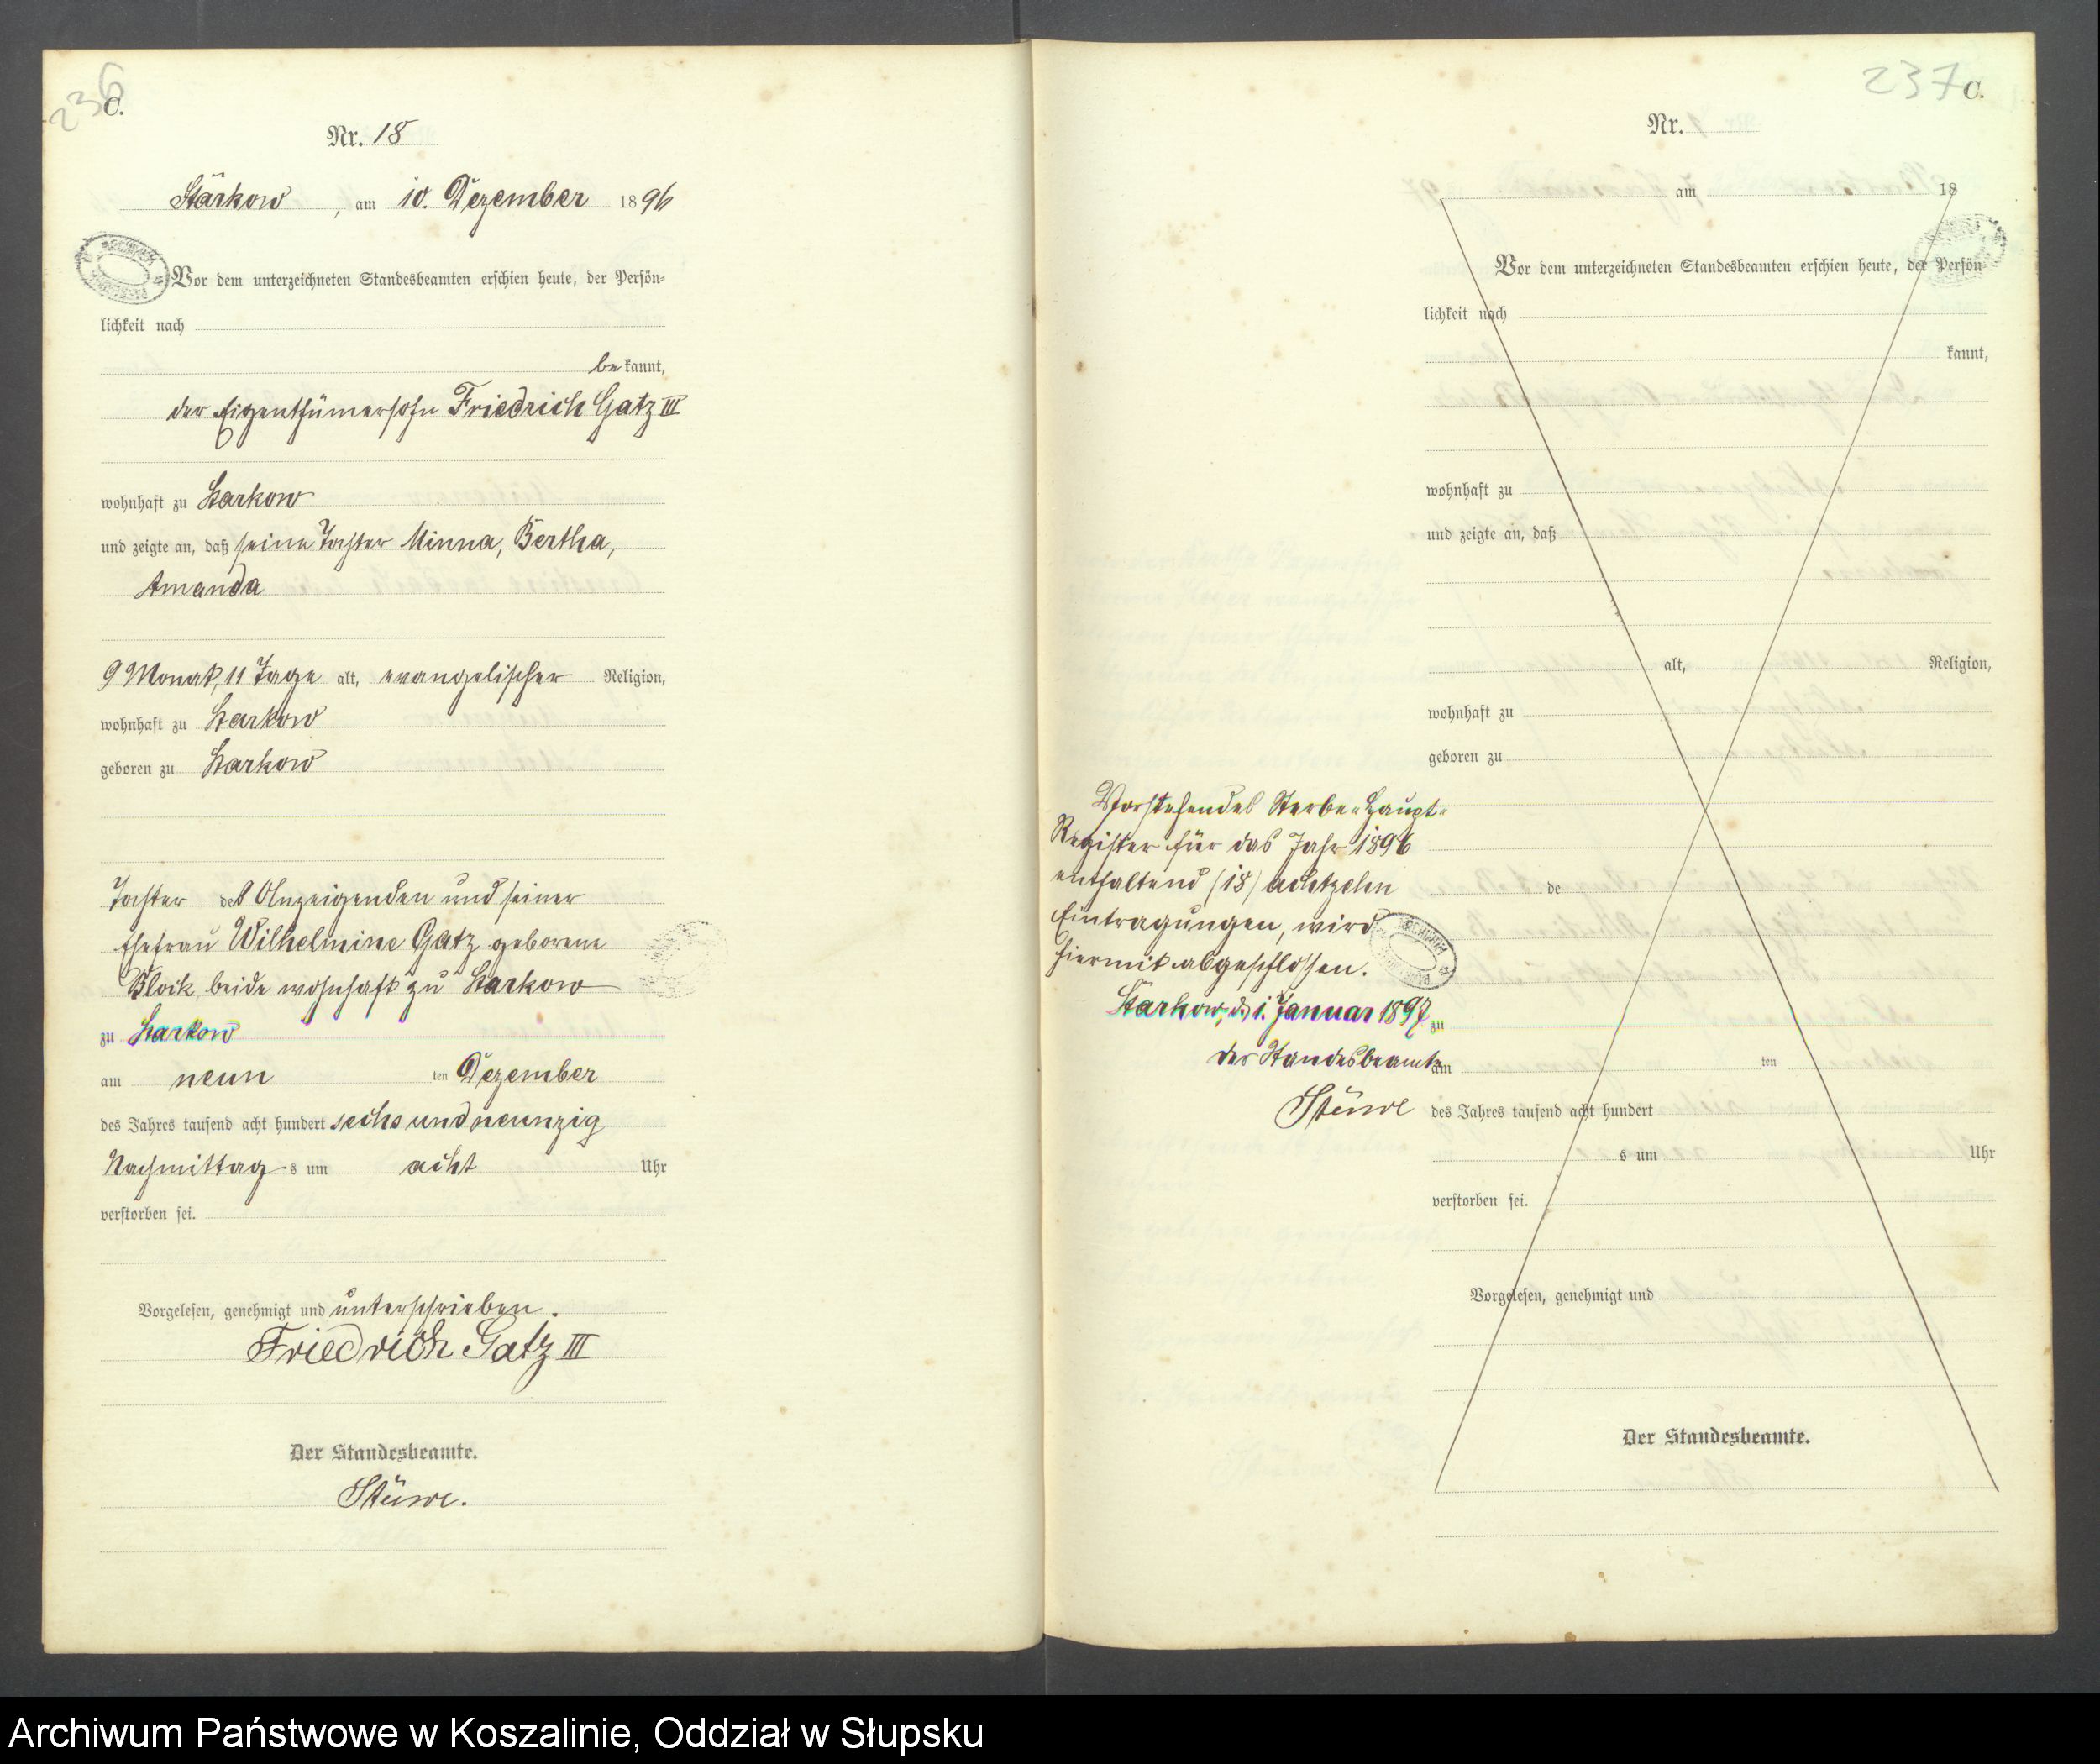 236
C.
Nr. 18
Starkow, am 10. Dezember 1896
Vor dem unterzeichneten Standesbeamten erschien heute, der Persön-
lichkeit nach
bekannt,
der Eigenthümersohn Friedrich Gatz III
wohnhaft zu Starkow
und zeigte an, daß seine Tochter Minna, Bertha,
Amanda
9 Monat, 11 Tage alt, evangelischer Religion,
wohnhaft zu Starkow
geboren zu Starkow
Tochter des Anzeigenden und seiner
Ehefrau Wilhelmine Gatz geborene
Block beide wohnhaft zu Starkow
zu Starkow
am neun ten Dezember
des Jahres tausend acht hundert sechs und neunzig
Nachmittags um acht Uhr
verstorben sei.
Vorgelesen, genehmigt und unterschrieben.
Friedrich Gatz III
Der Standesbeamte.
Stüwe.
237
C.
Nr.
am 18
Vor dem unterzeichneten Standesbeamten erschien heute, der Persön-
lichkeit nach
kannt,
wohnhaft zu
und zeigte an, daß
alt, Religion,
wohnhaft zu
geboren zu
Vorstehendes Sterbe-Haupt-
Register für das Jahr 1896
enthaltend (18) achtzehn
Eintragungen, wird
hiermit abgeschlossen.
Starkow, d. 1. Januar 1897
der Standesbeamte
Stüwe
de
zu
am ten
des Jahres tausend acht hundert
s um Uhr
verstorben sei.
Vorgelesen, genehmigt und
Der Standesbeamte.
Archiwum Państwowe w Koszalinie, Oddział w Słupsku